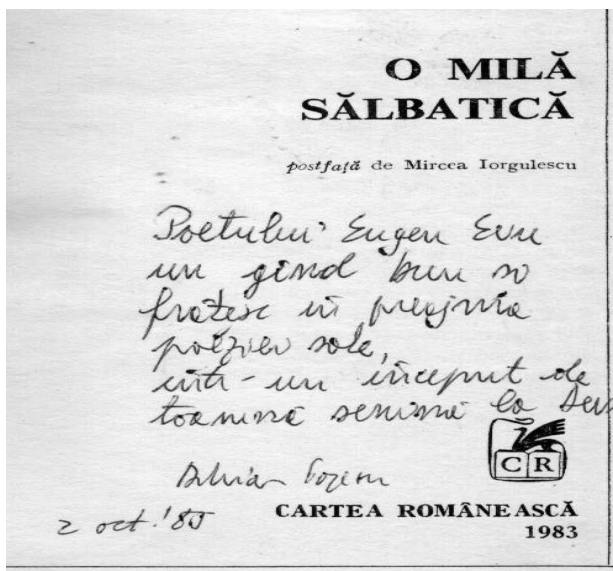 O MILĂ
SĂLBATICĂ
postfață de Mircea Iorgulescu
Poetului Eugen Evu
un gînd bun și
frățesc în preajma
poeziei sale,
într-un început de
toamnă senină la
2 oct. '85
CR
CARTEA ROMÂNEASCĂ
1983